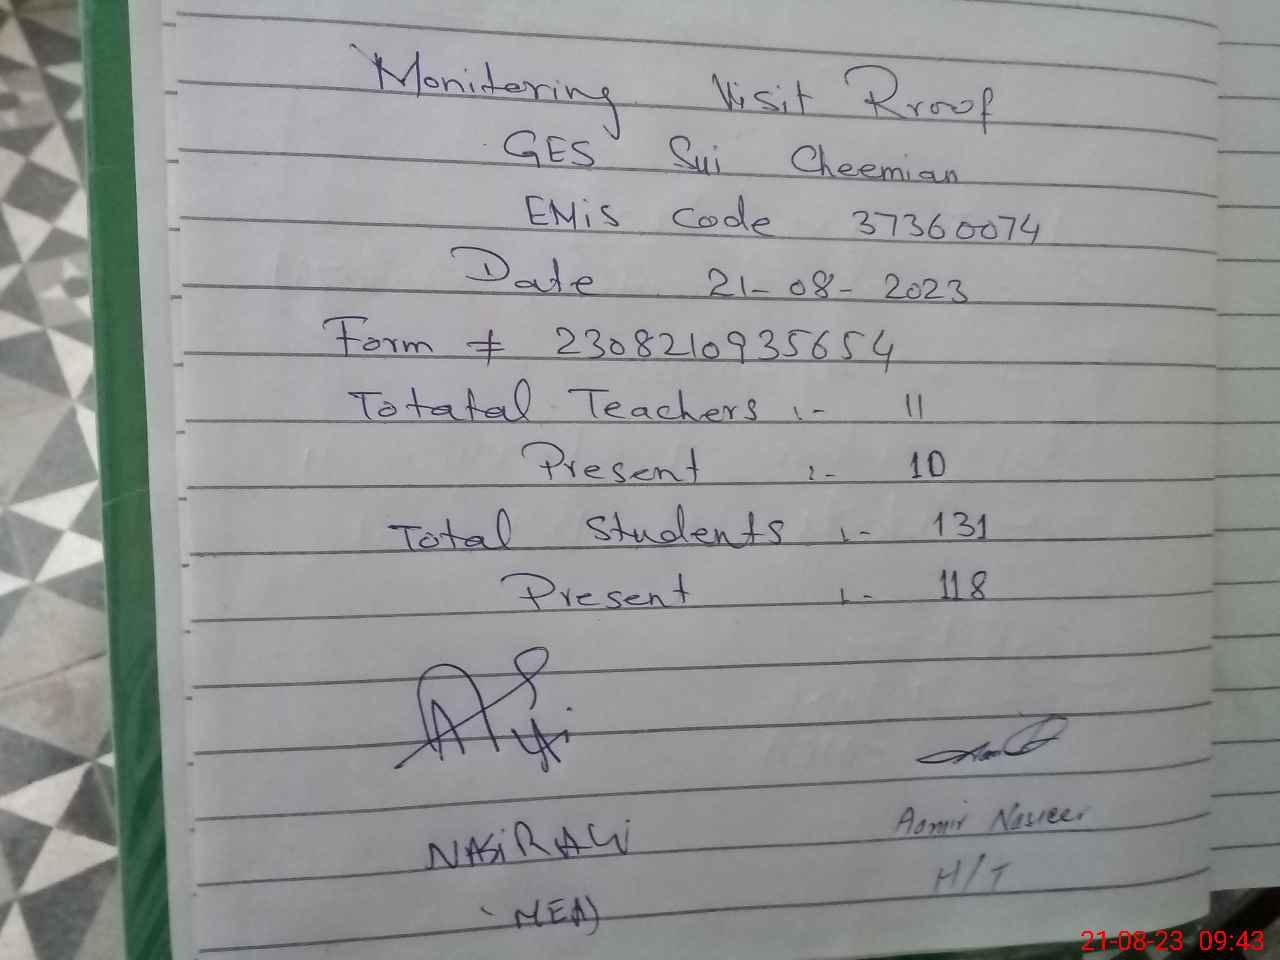 Monitering Visit Rroof
GES Sui Cheemian
EMiS Code 37360074
Date 21-08-2023
Form # 2308210935654
Totatal Teachers :- 11
Present :- 10
Total Students :- 131
Present :- 118
NASiR ALi
Aamir Naseer
(MEA)
H/T
21-08-23 09:43